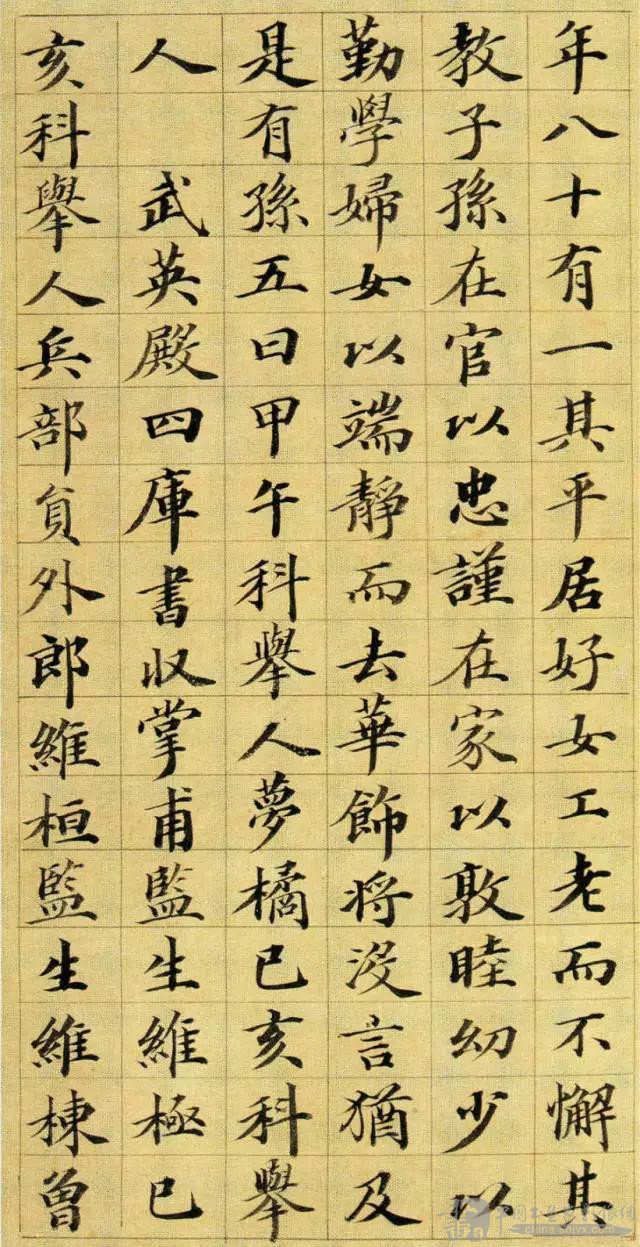 年八十有一其平居好女工老而不懈其
教子孫在官以忠謹在家以敦睦幼少以
勤學婦女以端靜而去華飾将没言猶及
是有孫五曰甲午科舉人夢橘已亥科舉
人武英殿四庫書収掌甫監生維極已
亥科舉人兵部負外郎維桓監生維棟曾
china-shjvx.com